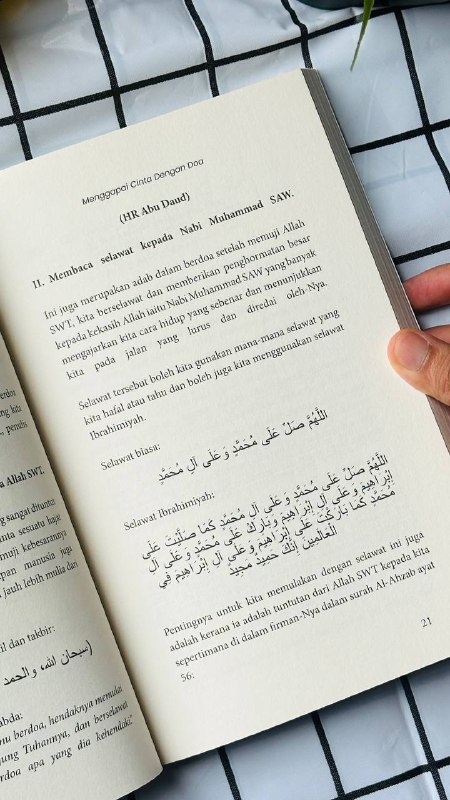 erdoa
ng kita
, penulis
a Allah SWT.
ng sangat dituntut
nta sesuatu hajat
muji kebesarannya
pan manusia juga
jauh lebih mulia dan
il dan takbir:
(سبحان الله، والحمد
Abda:
nu berdoa, hendaknya memulai
jung Tuhannya, dan berselawat
rdoa apa yang dia kehendaki."
Menggapai Cinta Dengan Doa
(HR Abu Daud)
II. Membaca selawat kepada Nabi Muhammad SAW.
Ini juga merupakan adab dalam berdoa setelah memuji Allah
SWT, kita berselawat dan memberikan penghormatan besar
kepada kekasih Allah iaitu Nabi Muhammad SAW yang banyak
mengajarkan kita cara hidup yang sebenar dan menunjukkan
kita pada jalan yang lurus dan diredai oleh-Nya.
Selawat tersebut boleh kita gunakan mana-mana selawat yang
kita hafal atau tahu dan boleh juga kita menggunakan selawat
Ibrahimiyah.
Selawat biasa:
اللَّهُمَّ صَلِّ عَلَى مُحَمَّدٍ وَعَلَى آلِ مُحَمَّدٍ
Selawat Ibrahimiyah:
اللَّهُمَّ صَلِّ عَلَى مُحَمَّدٍ وَعَلَى آلِ مُحَمَّدٍ كَمَا صَلَّيْتَ عَلَى
إِبْرَاهِيمَ وَعَلَى آلِ إِبْرَاهِيمَ وَبَارِكْ عَلَى مُحَمَّدٍ وَعَلَى آلِ
مُحَمَّدٍ كَمَا بَارَكْتَ عَلَى إِبْرَاهِيمَ وَعَلَى آلِ إِبْرَاهِيمَ فِي
الْعَالَمِينَ إِنَّكَ حَمِيدٌ مَجِيدٌ
Pentingnya untuk kita memulakan dengan selawat ini juga
adalah kerana ia adalah tuntutan dari Allah SWT kepada kita
sepertimana di dalam firman-Nya dalam surah Al-Ahzab ayat
56:
21